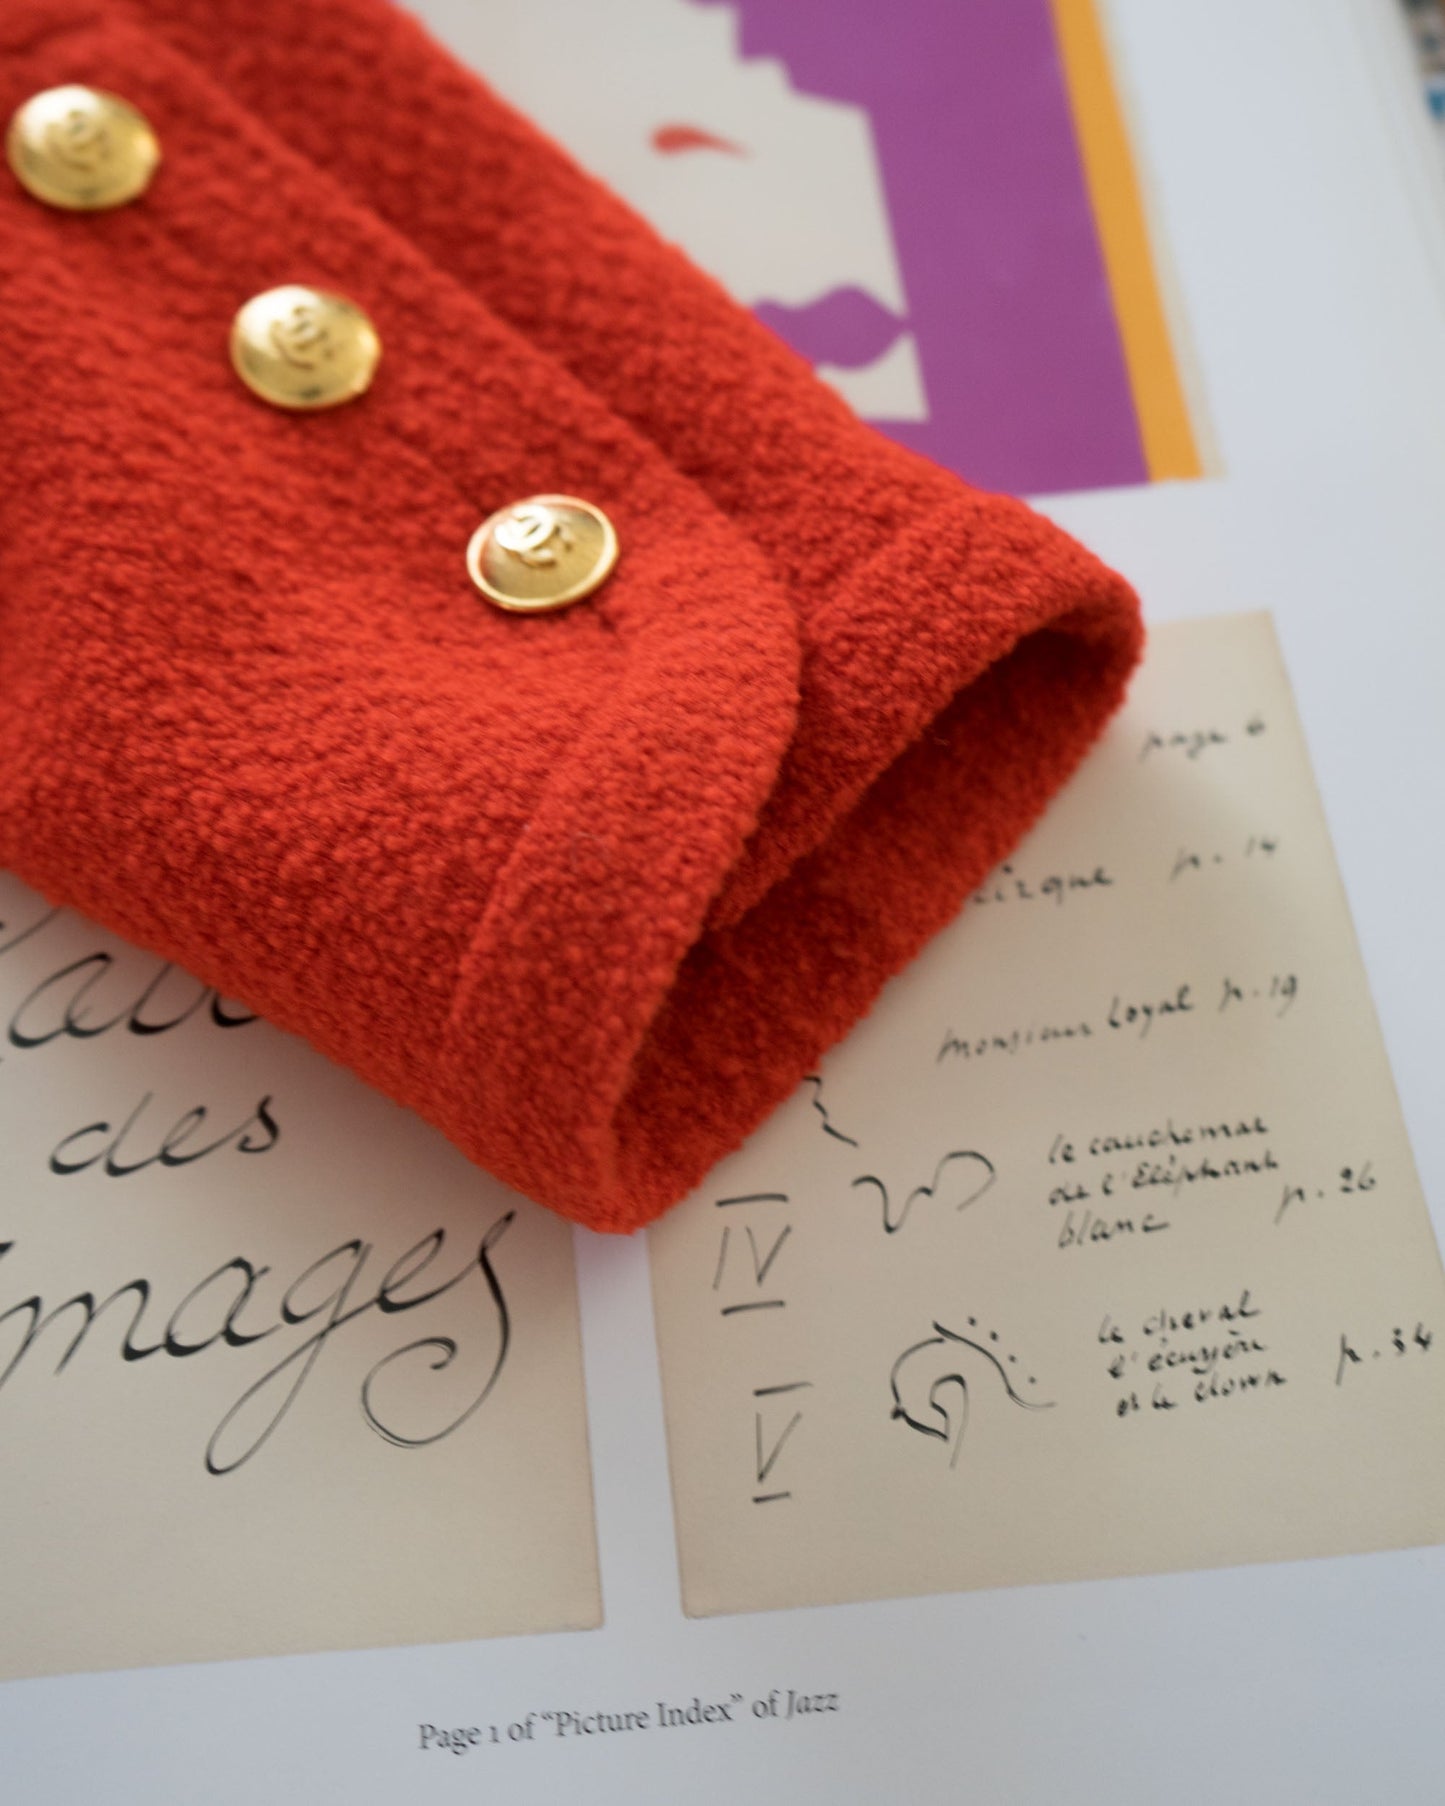 des
Images
page 6
p. 14
monsieur Loyal p. 19
IV
le cauchemar
de l'Eléphant
blanc
p. 26
V
le cheval
l'écuyère
et le clown
p. 34
Page 1 of “Picture Index” of Jazz